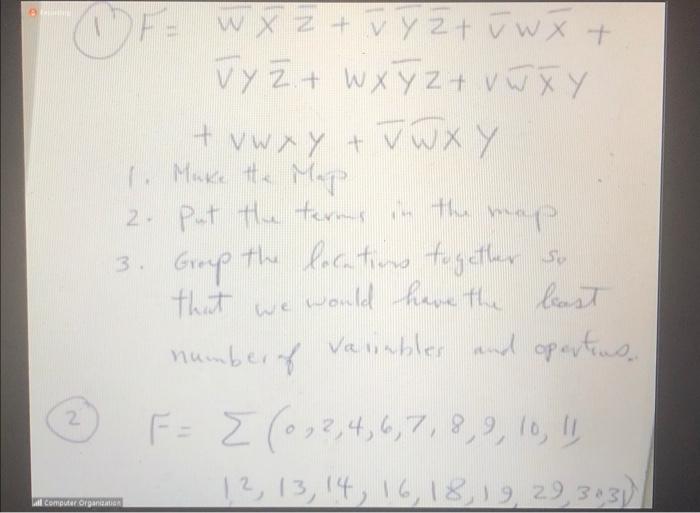 ① F = w̅ x̅ z̅ + v̅ y̅ z̅ + v̅ w x̅ +
v̅ y z̅ + w x y̅ z + v w̅ x̅ y
+ v w x y + v̅ w̅ x y
1. Make the Map
2. Put the terms in the map
3. Group the locations together so
that we would have the least
number of variables and opertions.
② F = Σ (0, 2, 4, 6, 7, 8, 9, 10, 11,
12, 13, 14, 16, 18, 19, 29, 30, 31)
Computer Organization